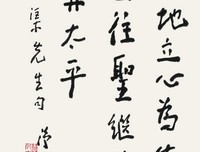 地立心為
往聖繼
太平
渠先生句